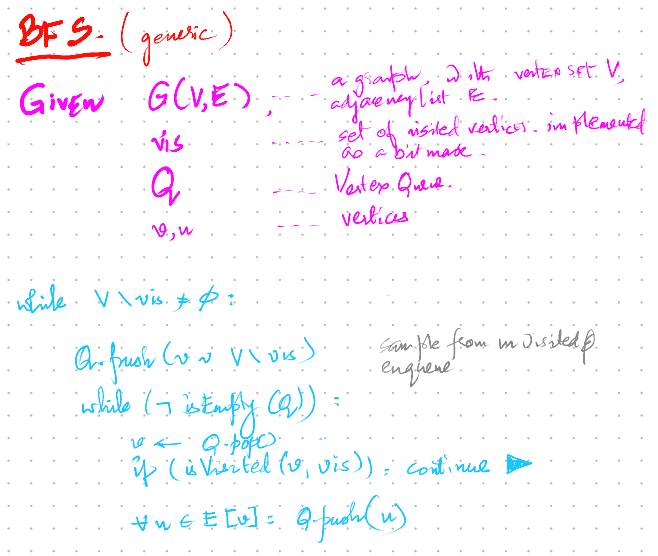 BFS. (generic)
Given G(V,E), ---- a graph, with vertex set V,
adjacency list E.
vis ---- set of visited vertices. implemented
as a bit mask.
Q ---- Vertex Queue.
v, u ---- vertices
while V \ vis ≠ ϕ :
Q.push(v ~ V \ vis)
sample from unvisited &
enqueue
while (¬ isEmpty (Q)) :
v ← Q.pop()
if (isVisited (v, vis)) : continue ▶
∀ u ∈ E[v] : Q.push(u)